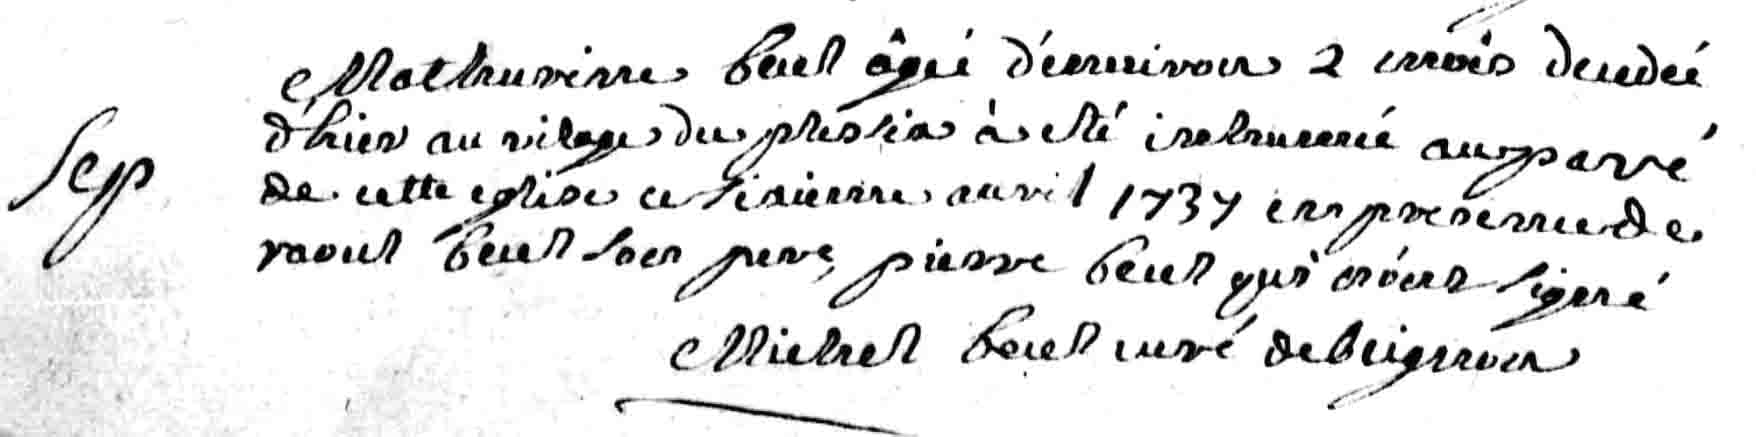 Mathurinne bect âgé d'enuiron 2 mois decedé
d'hier au vilage du plessix à esté inhumé au parvé
Sep
de cette eglise ce sixieme avril 1737 en presence de
raoul bect son pere, pierre bect qui n'ont signé
Michel curé de beignon